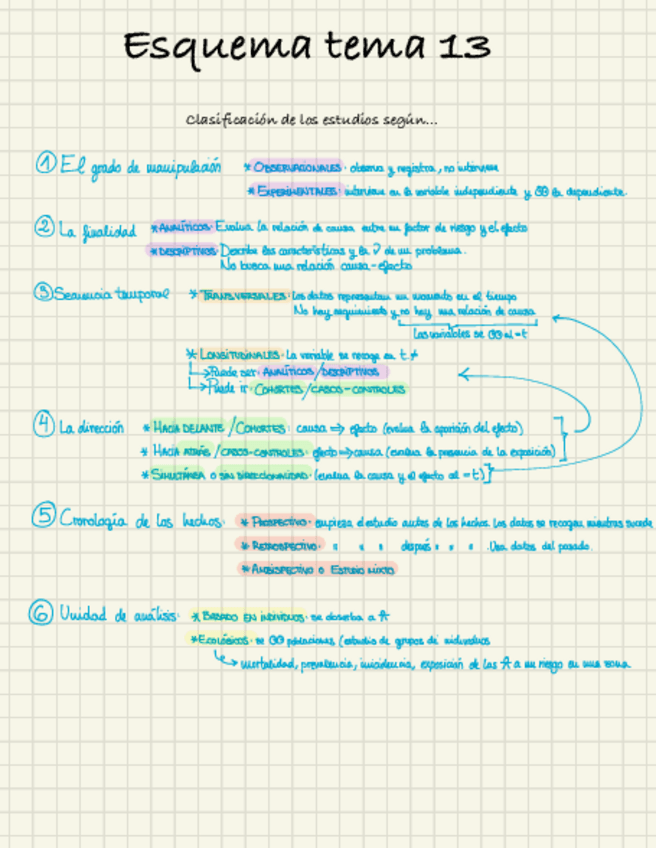 Esquema tema 13
Clasificación de los estudios según...
① El grado de manipulación * OBSERVACIONALES· observa y registra, no interviene
* EXPERIMENTALES· interviene en la variable independiente y la dependiente.
② La finalidad *ANALÍTICOS· Evalua la relación de causa entre un factor de riesgo y el efecto
*DESCRIPTIVOS· Describe las características y la de un problema.
No busca una relación causa-efecto
③ Secuencia temporal * TRANSVERSALES· los datos representan un momento en el tiempo
No hay seguimiento y no hay una relación de causa
Las variables se al = t
* LONGITUDINALES· La variable se recoge en t ≠
↳Puede ser· ANALÍTICOS/DESCRIPTIVOS
↳Puede ir· COHORTES/CASOS-CONTROLES
④ La dirección * HACIA DELANTE /COHORTES· causa ⇒ efecto (evalua la aparición del efecto)
* HACIA ATRÁS /CASOS-CONTROLES· efecto ⇒ causa (evalua la presencia de la exposición)
* SIMULTÁNEA O SIN DIRECCIONALIDAD· (evalua la causa y el efecto al = t)
⑤ Cronología de los hechos· * PROSPECTIVO· empieza el estudio antes de los hechos. Los datos se recogen mientras sucede
* RETROSPECTIVO· " " " después " " " . Usa datos del pasado.
* AMBISPECTIVO O ESTUDIO MIXTO
⑥ Unidad de análisis· * BASADO EN INDIVIDUOS· se observa a
*ECOLÓGICOS· se poblaciones (estudio de grupos de individuos
↳ mortalidad, prevalencia, incidencia, exposición de las a un riesgo en una zona.